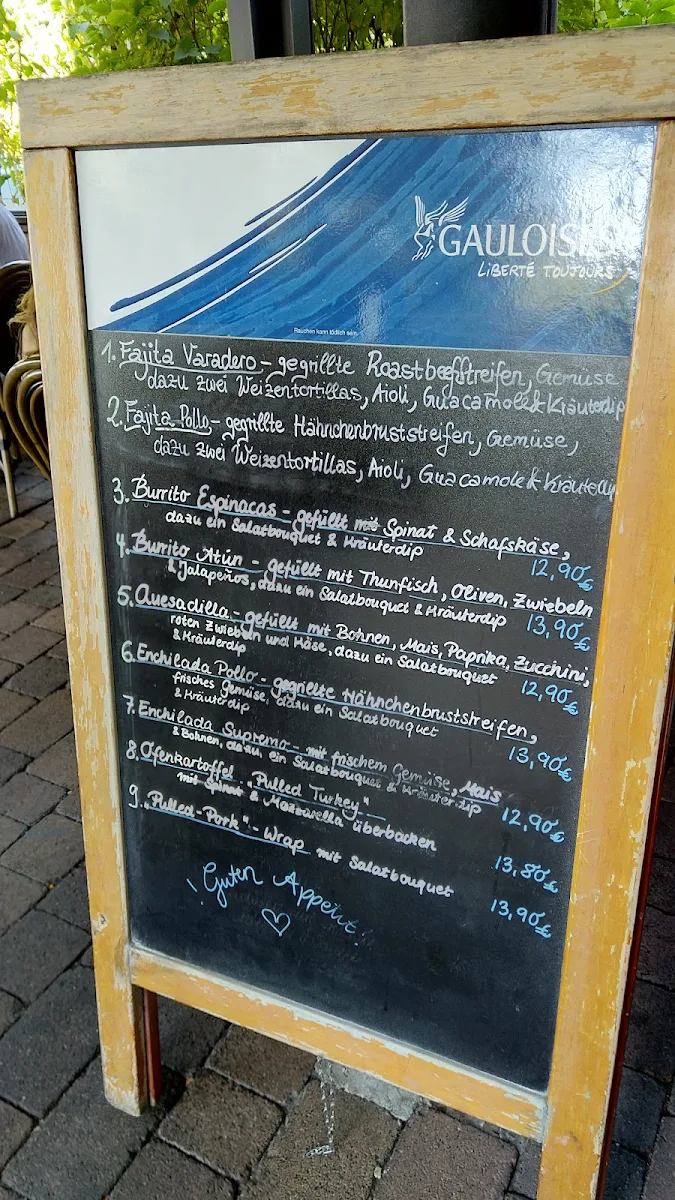 GAULOISES
LIBERTÉ TOUJOURS
Rauchen kann tödlich sein.
1. Fajita Varadero - gegrillte Roastbeefstreifen, Gemüse
dazu zwei Weizentortillas, Aioli, Guacamole & Kräuterdip
2. Fajita Pollo - gegrillte Hähnchenbruststreifen, Gemüse,
dazu zwei Weizentortillas, Aioli, Guacamole & Kräuterdip
3. Burrito Espinacas - gefüllt mit Spinat & Schafskäse,
dazu ein Salatbouquet & Kräuterdip 12,90€
4. Burrito Atún - gefüllt mit Thunfisch, Oliven, Zwiebeln
& Jalapeños, dazu ein Salatbouquet & Kräuterdip 13,90€
5. Quesadilla - gefüllt mit Bohnen, Mais, Paprika, Zucchini,
roten Zwiebeln und Käse, dazu ein Salatbouquet
& Kräuterdip 12,90€
6. Enchilada Pollo - gegrillte Hähnchenbruststreifen,
frisches Gemüse, dazu ein Salatbouquet
& Kräuterdip 13,90€
7. Enchilada Supremo - mit frischem Gemüse, Mais
& Bohnen, dazu ein Salatbouquet & Kräuterdip 12,90€
8. Ofenkartoffel "Pulled Turkey" -
mit Spinat & Mozzarella überbacken 13,80€
9. "Pulled-Pork" - Wrap mit Salatbouquet 13,90€
! Guten Appetit!
♡